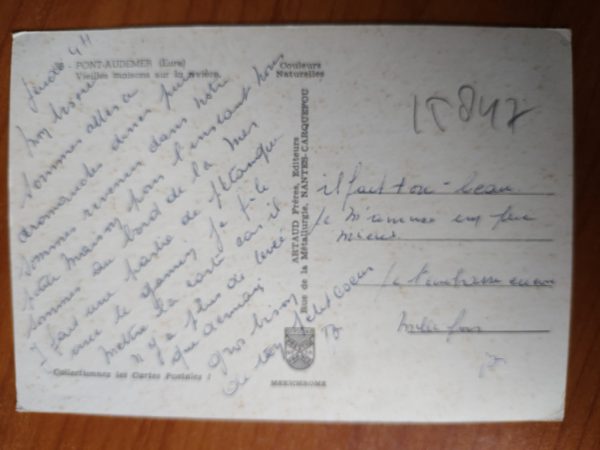 PONT-AUDEMER (Eure)
Vieilles maisons sur la rivière
Couleurs
Naturelles
Jeudi 4H
Mon
sommes allés a
aromanches diner puis
sommes revenus dans notre
petite maison pour l'instant nous
sommes au bord de la mer
I fait une partie de pétanque
avec le gamin je t le
mettre la carte car il
n y a plus de levée
que demain
Gros bisou
de ton petit coeur
ARTAUD Frères, Editeurs
Rue de la Métallurgie, NANTES-CARQUEFOU
15847
il fait tou- beau
Je m'ennuie un peu
mieux
Je t'embrasse encore
mille fois
Collectionnez les Cartes Postales !
MEXICHROME